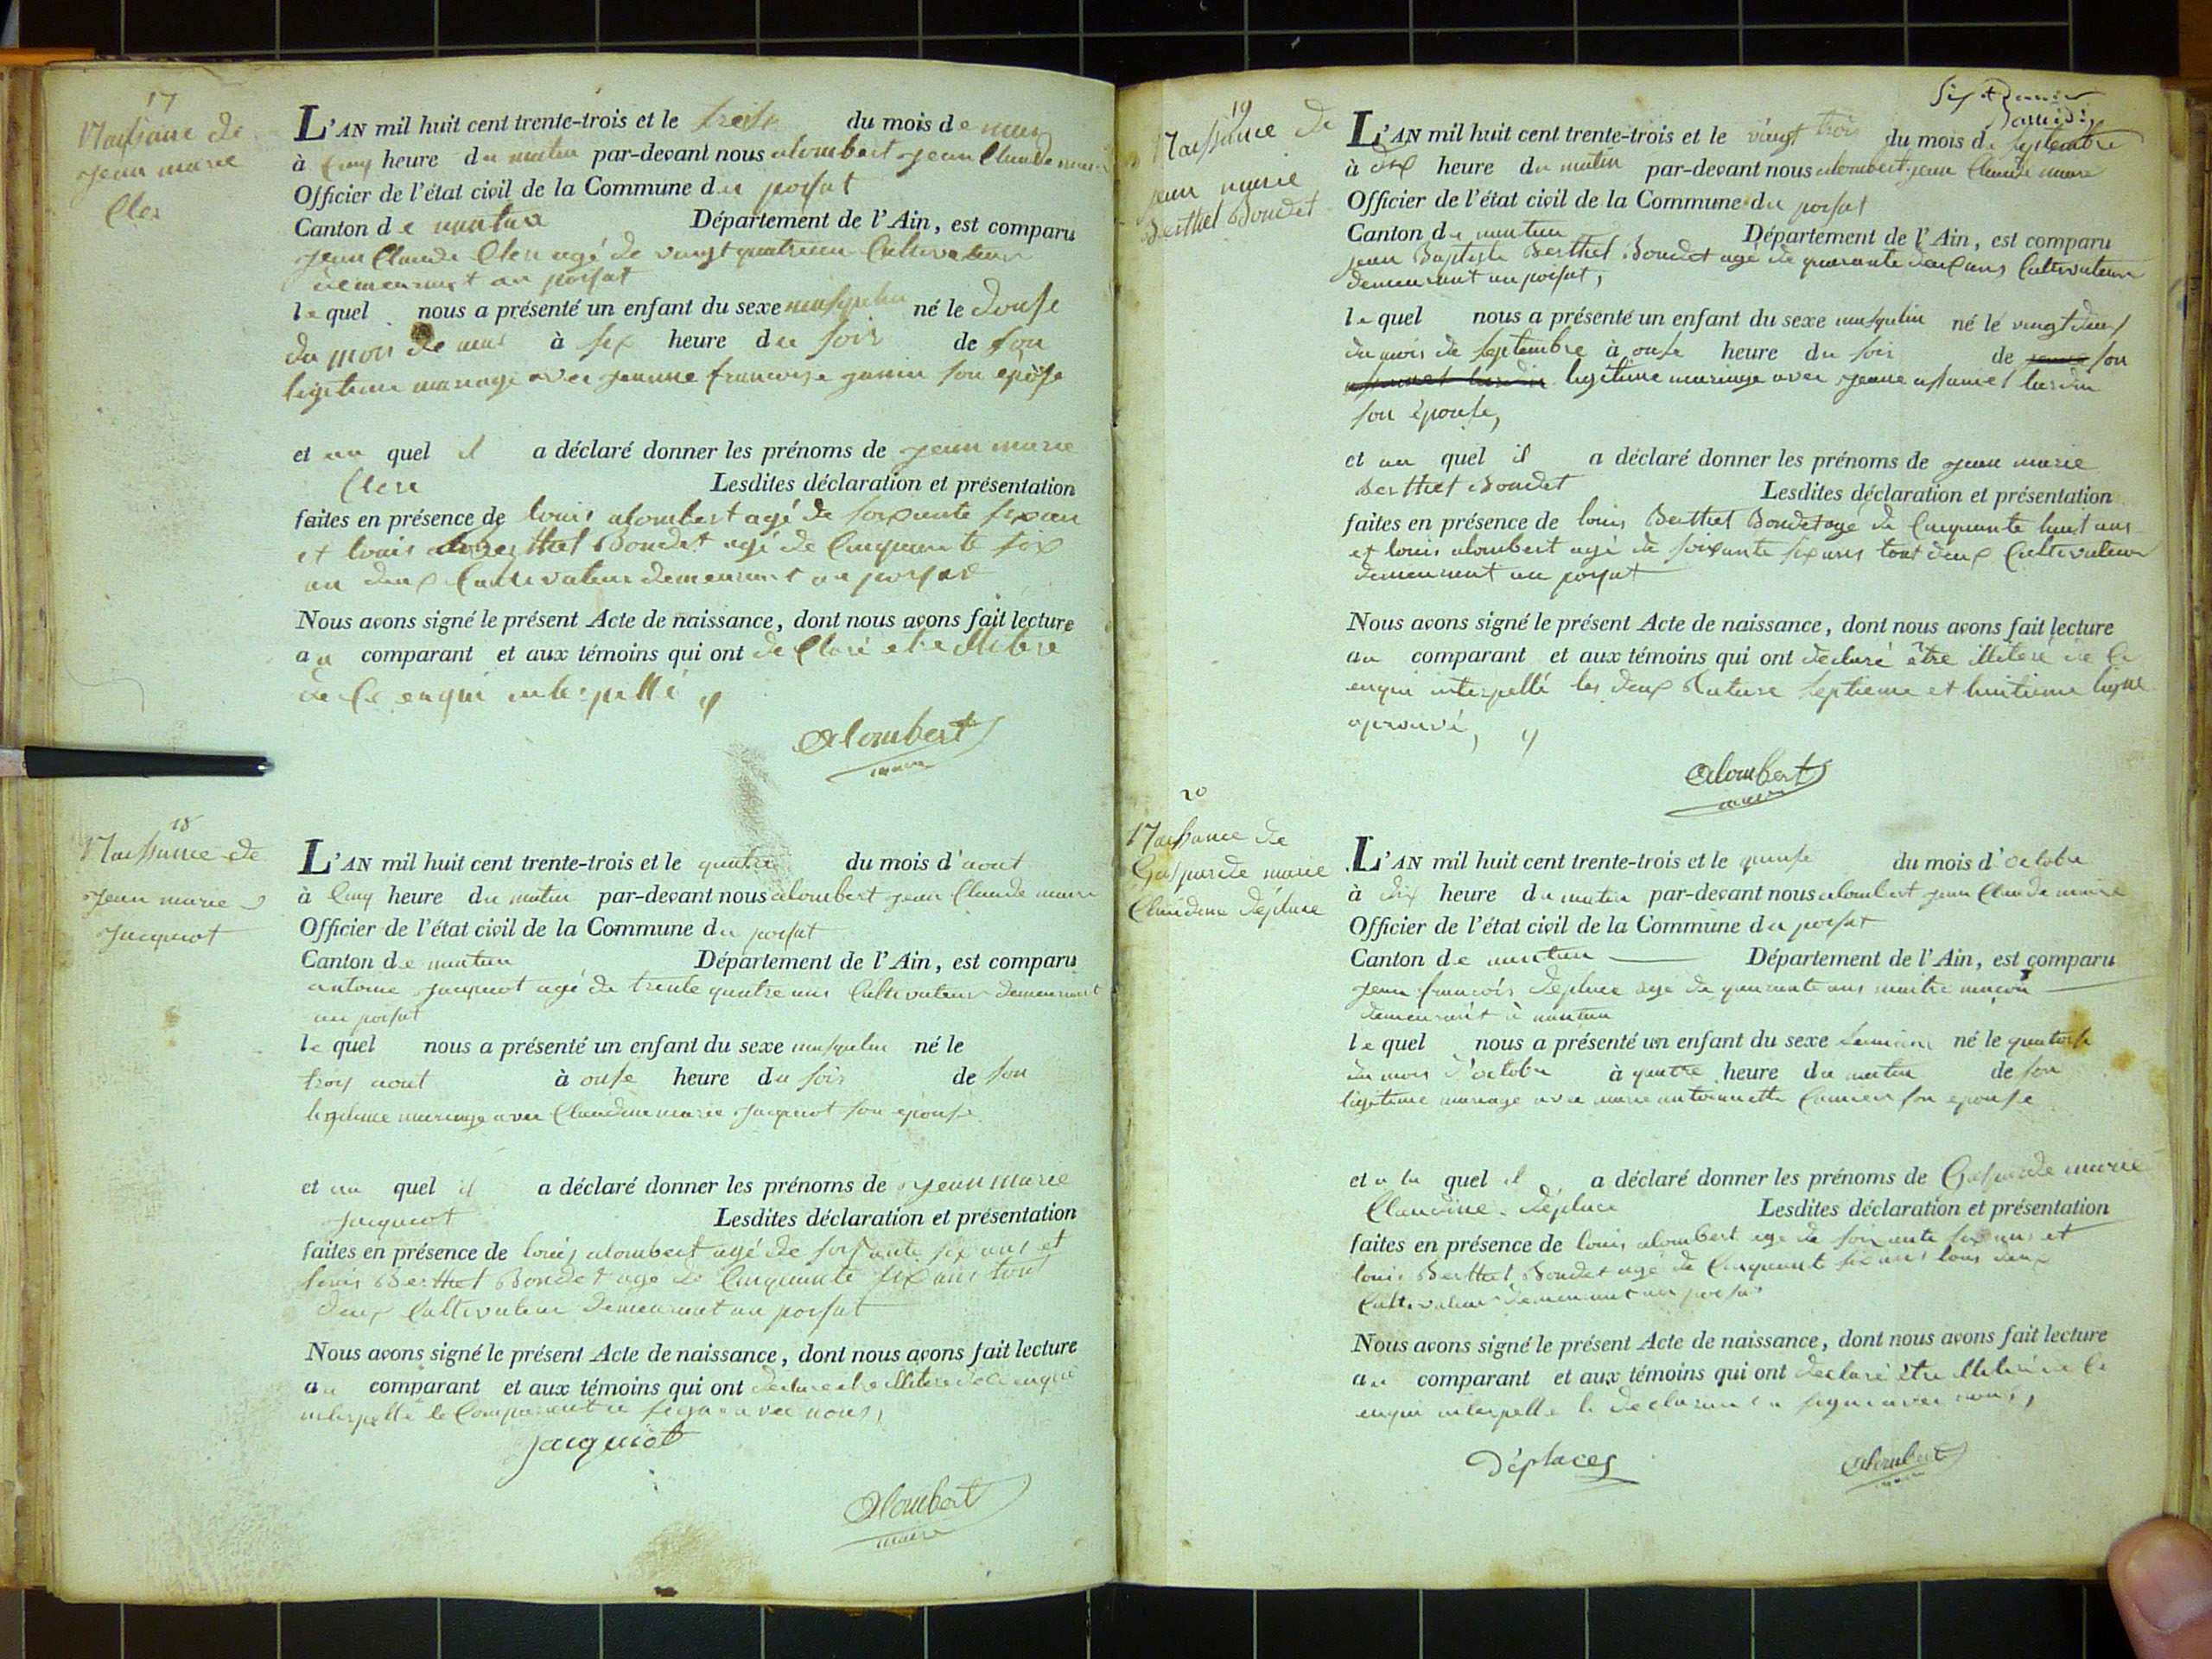 17
Naissance de
jean marie
Cler
L'AN mil huit cent trente-trois et le treise du mois de mars
à cinq heure du matin par-devant nous alombert jean Claude maire
Officier de l'état civil de la Commune du poisat
Canton de nantua Département de l'Ain, est comparu
jean Claude Clerc agé de vingt quatre Cultivateur
demeurant au poisat
lequel nous a présenté un enfant du sexe masqulin né le douse
du mois de mars à six heure du soir de son
legitime mariage avec jeanne francoise son epose
et au quel il a déclaré donner les prénoms de jean marie
Clerc Lesdites déclaration et présentation
faites en présence de louis alombert agé de soixante six an
et louis Berthet Bondet agé de Cinquante six
an deux Cultivateur demeurant au poisat
Nous avons signé le présent Acte de naissance, dont nous avons fait lecture
au comparant et aux témoins qui ont declaré etre illitere
de ce enqui interpellé
alombert
maire
18
Naissance de
jean marie
jacquiot
L'AN mil huit cent trente-trois et le quatre du mois d'aout
à Cinq heure du matin par-devant nous alombert jean Claude maire
Officier de l'état civil de la Commune du poisat
Canton de nantua Département de l'Ain, est comparu
antoine jacquiot agé de trente quatre ans Cultivateur demeurant
au poisat
lequel nous a présenté un enfant du sexe masqulin né le
trois aout à onse heure du soir de son
legitime mariage avec Claudine marie jacquiot son épouse
et au quel il a déclaré donner les prénoms de jean marie
jacquiot Lesdites déclaration et présentation
faites en présence de louis alombert agé de soixante six ans et
louis Berthet Bondet age de Cinquante six ans tout
deux Cultivateur demeurant au poisat
Nous avons signé le présent Acte de naissance, dont nous avons fait lecture
au comparant et aux témoins qui ont declare etre illitere de ce enqui
interpelle le Comparant a signe avec nous,
jacquiot
Alombert
maire
19
Naissance de
jean marie
Berthet Bondet
L'AN mil huit cent trente-trois et le vingt trois du mois de septembre
à dix heure du matin par-devant nous alombert jean Claude maire
Officier de l'état civil de la Commune du poisat
Canton de nantua Département de l'Ain, est comparu
jean Baptiste Berthet Bondet agé de quarante deux ans Cultivateur
demeurant au poisat,
lequel nous a présenté un enfant du sexe masqulin né le vingt deux
du mois de septembre à onse heure du soir de son
legitime mariage avec jeanne
son épouse,
et au quel il a déclaré donner les prénoms de jean marie
Berthet Bondet Lesdites déclaration et présentation
faites en présence de louis Berthet Bondet agé de Cinquante huit ans
et louis alombert agé de soixante six ans tout deux Cultivateur
demeurant au poisat
Nous avons signé le présent Acte de naissance, dont nous avons fait lecture
au comparant et aux témoins qui ont declaré être illiteré de ce
enqui interpellé les deux Rature septieme et huitieme ligne
aprouvé,
alombert
maire
20
Naissance de
Gasparde marie
Claudine déplace
L'AN mil huit cent trente-trois et le quinse du mois d'octobre
à dix heure du matin par-devant nous alombert jean Claude maire
Officier de l'état civil de la Commune du poisat
Canton de nantua Département de l'Ain, est comparu
jean francois déplace age de quarante ans maitre macon
demeurant à nantua
lequel nous a présenté un enfant du sexe né le quatorse
du mois d'octobre à quatre heure du matin de son
legitime mariage avec marie antoinette son epouse
et a la quel il a déclaré donner les prénoms de Gasparde marie
Claudine déplace Lesdites déclaration et présentation
faites en présence de louis alombert age de soixante six ans et
louis Berthet Bondet agé de Cinquante six ans tous deux
Cultivateur demeurant au poisat
Nous avons signé le présent Acte de naissance, dont nous avons fait lecture
au comparant et aux témoins qui ont declaré être illiteré de ce
enqui interpelle le declarant a signe avec nous,
Déplaces
alombert
maire